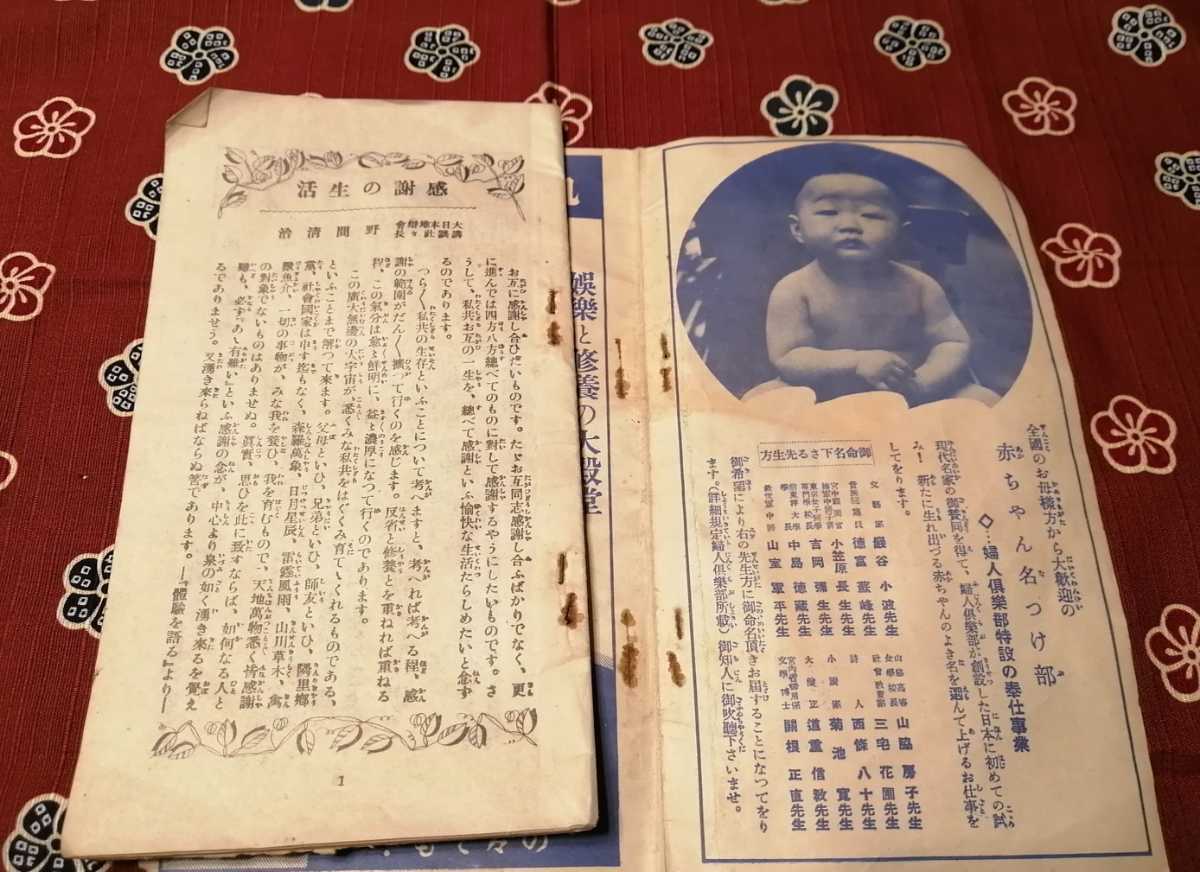 感謝の生活
大日本雄辯會講談社々長 野間清治
お互に感謝し合ひたいものです。たゞお互同志感謝し合ふばかりでなく、更
に進んでは四方八方總べてのものに對して感謝するやうにしたいものです。さ
うして、私共お互の一生を、總べて感謝といふ愉快な生活たらしめたいと念ず
るのであります。
つら〱私共の生存といふことについて考へますと、考へれば考へる程、感
謝の範圍がだん〱擴つて行くのを感じます。反省と修養とを重ねれば重ねる
程、この氣分は愈〻鮮明に、益〻濃厚になつて行くのであります。
この廣大無邊の大宇宙が、悉くみな私共をはぐくみ育てゝくれるものである、
といふことまで解つて來ます。父母といひ、兄弟といひ、師友といひ、隣里鄕
黨、社會國家は申す迄もなく、森羅萬象、日月星辰、雷霆風雨、山川草木、禽
獸魚介、一切の事物が、みな我を養ひ、我を育むもので、天地萬物悉く皆感謝
の對象でないものはありませぬ。眞實、思ひを此に致すならば、如何なる人と
雖も、必ず『あゝ有難い』といふ感謝の念が、中心より泉の如く湧き來るを覺え
るでありませう。又湧き來らねばならぬ筈であります。―『體驗を語る』より―
1
娛樂と修養の大殿堂
全國のお母樣方から大歡迎の
赤ちゃん名つけ部
◇…婦人俱樂部特設の奉仕事業
現代名家の御贊同を得て、婦人俱樂部が創設した日本に初めての試
み！ 新たに生れ出づる赤ちゃんのよき名を選んで上げるお仕事を
してをります。
御命名下さる先生方
文藝家 巖谷小波先生
德富蘇峰先生
小笠原長生先生
吉岡彌生先生
中島德藏先生
山室軍平先生
山脇房子先生
三宅花圃先生
詩人 西條八十先生
小說家 菊池寬先生
大僧正 道重信敎先生
文學博士 關根正直先生
御希望により右の先生方に御命名頂きお屆することになつてをり
ます。（詳細規定婦人俱樂部所載）御知人に御吹聽下さいませ。